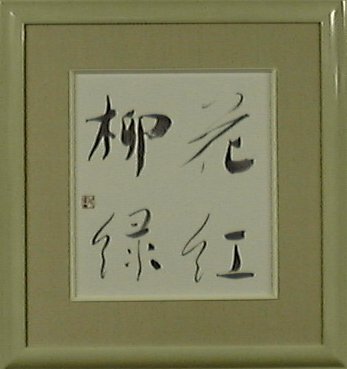 花紅
柳緑